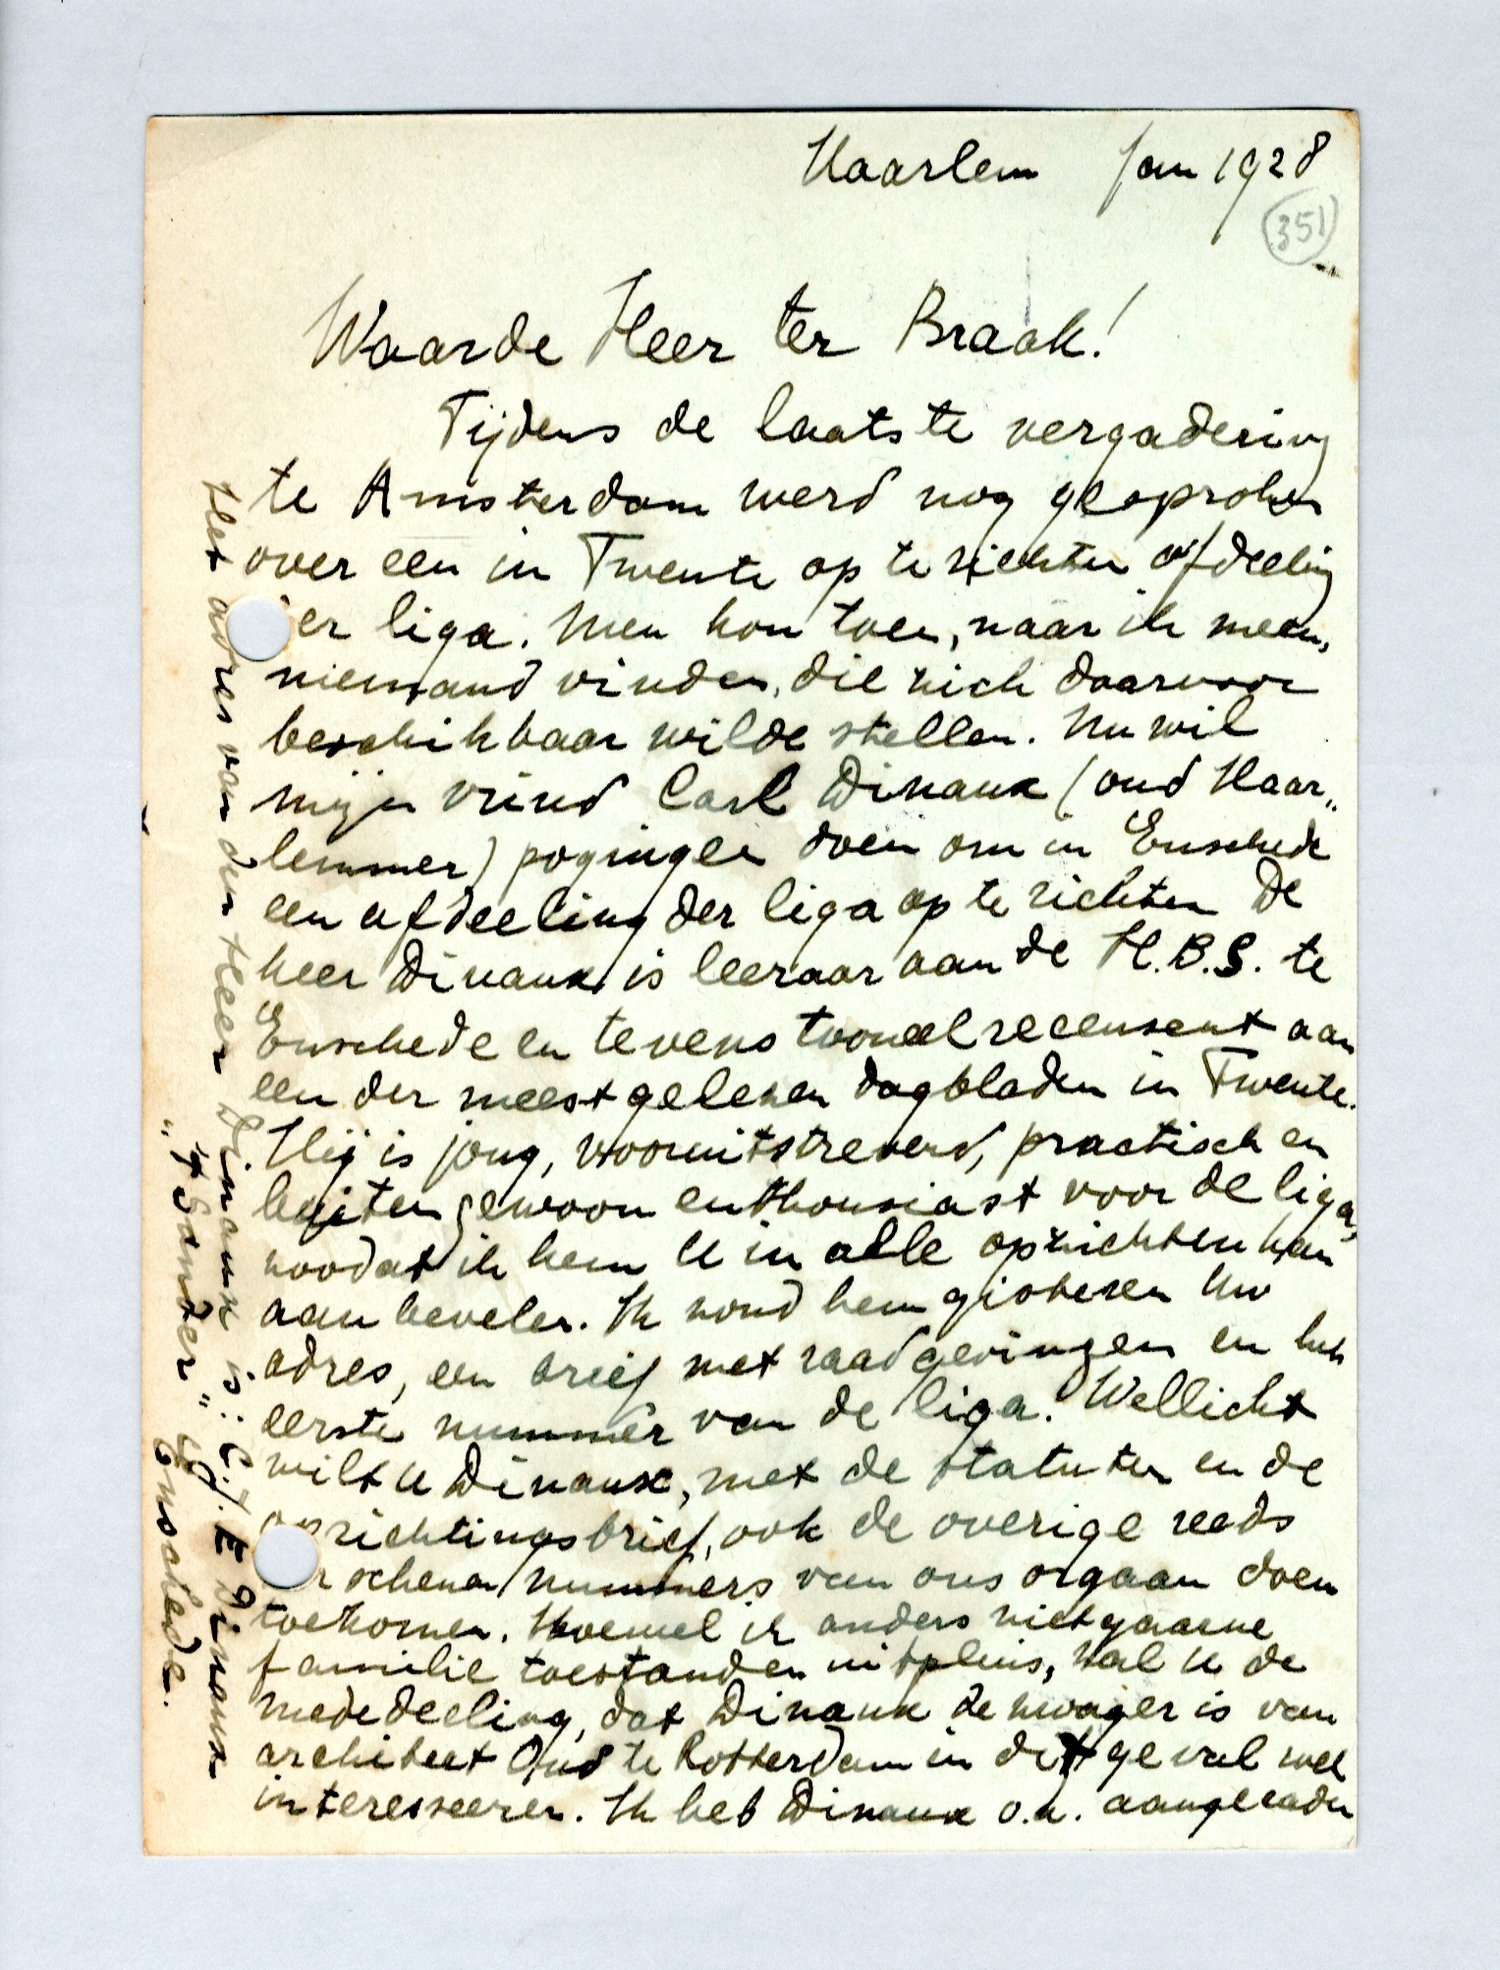 Haarlem Jan 1928
351
Waarde Heer ter Braak!
Tijdens de laatste vergadering
te Amsterdam werd nog gesproken
over een in Twente op te richten afdeeling
er liga. Men kon toen, naar ik meen,
niemand vinden, die zich daarvoor
beschikbaar wilde stellen. Nu wil
mijn vriend Carl Dinaux (oud Haar„
lemmer) pogingen doen om in Enschede
een afdeeling der liga op te richten De
heer Dinaux is leeraar aan de H.B.S. te
Enschede en tevens tooneelrecensent aan
een der meest gelezen dagbladen in Twente.
Hij is jong, vooruitstrevend, practisch en
buitengewoon enthousiast voor de liga,
zoodat ik hem U in alle opzichten kan
aanbevelen. Ik zond hem gisteren Uw
adres, een brief met raadgevingen en het
eerste nummer van de liga. Wellicht
wilt U Dinaux, met de statuten en de
oprichtingsbrief, ook de overige reeds
rschenen nummers van ons orgaan doen
toekomen. Hoewel ik anders niet gaarne
familie toestanden uitpluis, zal U de
mededeeling, dat Dinaux de zwager is van
architect Oud te Rotterdam in dit geval wel
interesseeren. Ik heb Dinaux o.a. aangeraden
Het adres van den Heer Dinaux is: C.J.E Dinaux
„'t Zander" Enschede.